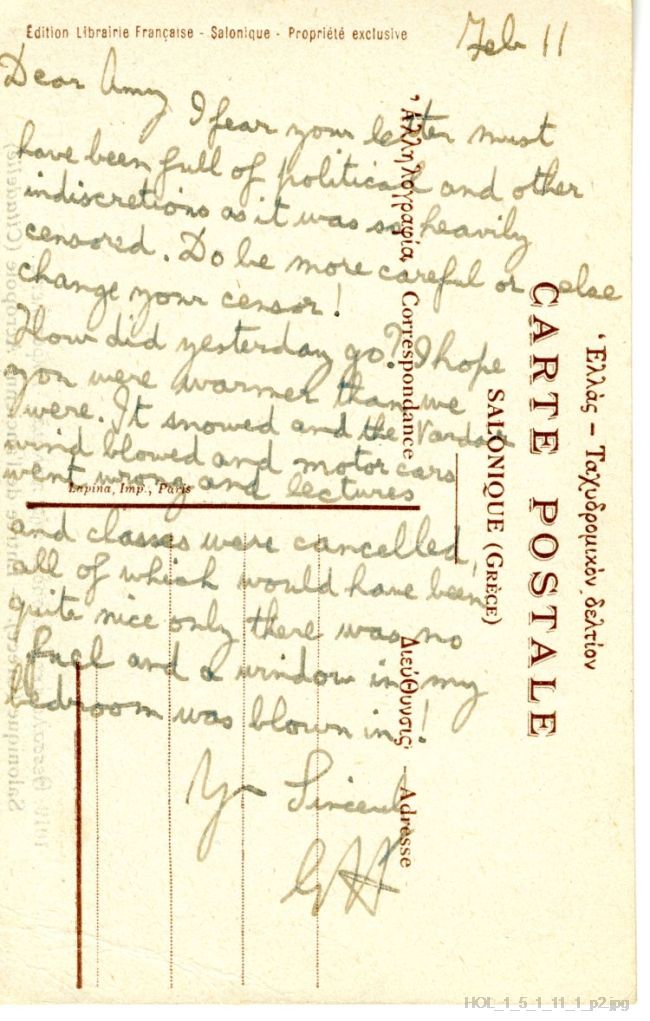 Édition Librairie Française - Salonique - Propriété exclusive
Feb 11
Dear Amy
I fear your letter must
have been full of political and other
indiscretions as it was so heavily
censored. Do be more careful or else
change your censor!
How did yesterday go? I hope
you were warmer than we
were. It snowed and the Vardar
wind blowed and motor cars
went wrong and lectures
and classes were cancelled,
all of which would have been
quite nice only there was no
fuel and a window in my
bedroom was blown in!
Yr Sincerely
GH
Lapina, Imp., Paris
Ἑλλάς – Ταχυδρομικόν δελτίον
CARTE POSTALE
SALONIQUE (GRÈCE)
Ἀλληλογραφία, Correspondance
Διεύθυνσις – Adresse
HOL_1_5_1_11_1_p2.jpg